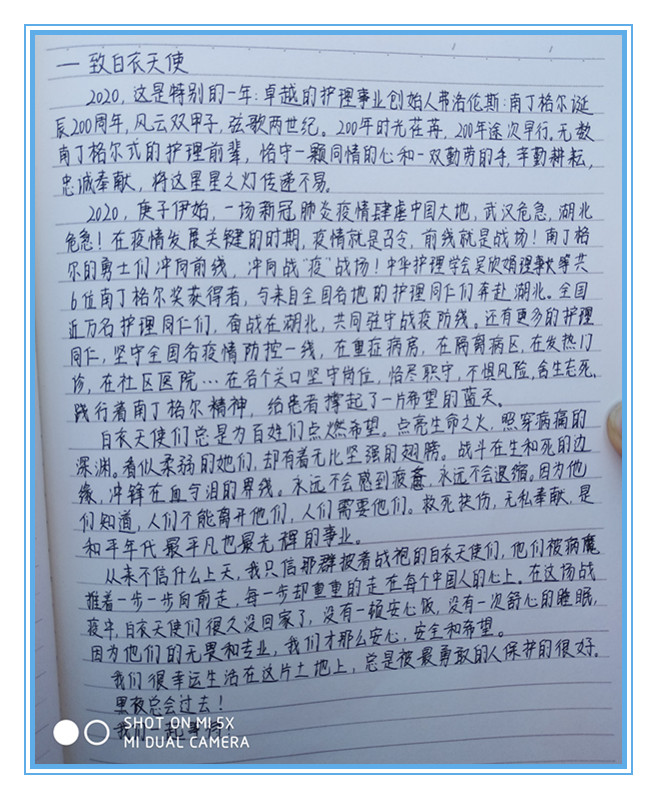 一 致白衣天使
2020,这是特别的一年:卓越的护理事业创始人弗洛伦斯·南丁格尔诞
辰200周年,风云双甲子,弦歌两世纪。200年时光荏苒,200年途次早行。无数
南丁格尔式的护理前辈,恪守一颗同情的心和一双勤劳的手,辛勤耕耘,
忠诚奉献,将这星星之灯传递不易。
2020,庚子伊始,一场新冠肺炎疫情肆虐中国大地,武汉危急,湖北
危急!在疫情发展关键的时期,疫情就是召令,前线就是战场!南丁格
尔的勇士们冲向前线,冲向战“疫”战场!中华护理学会吴欣娟理事长等共
6位南丁格尔奖获得者,与来自全国各地的护理同仁们奔赴湖北。全国
近万名护理同仁们,奋战在湖北,共同驻守战疫防线。还有更多的护理
同仁,坚守全国各疫情防控一线,在重症病房,在隔离病区,在发热门
诊,在社区医院…在各个关口坚守岗位,恪尽职守,不惧风险,舍生忘死,
践行着南丁格尔精神,给患者撑起了一片希望的蓝天。
白衣天使们总是为百姓们点燃希望。点亮生命之火,照穿病痛的
深渊。看似柔弱的她们,却有着无比坚强的翅膀。战斗在生和死的边
缘,冲锋在血与泪的界线。永远不会感到疲惫,永远不会退缩。因为他
们知道,人们不能离开他们,人们需要他们。救死扶伤,无私奉献,是
和平年代最平凡也最光辉的事业。
从来不信什么上天,我只信那群披着战袍的白衣天使们,他们被病魔
推着一步一步向前走,每一步却重重的走在每个中国人的心上。在这场战
疫中,白衣天使们很久没回家了,没有一顿安心饭,没有一次舒心的睡眠,
因为他们的无畏和专业,我们才那么安心,安全和希望。
我们很幸运生活在这片土地上,总是被最勇敢的人保护的很好。
黑夜总会过去!
我们一起
SHOT ON MI 5X
MI DUAL CAMERA